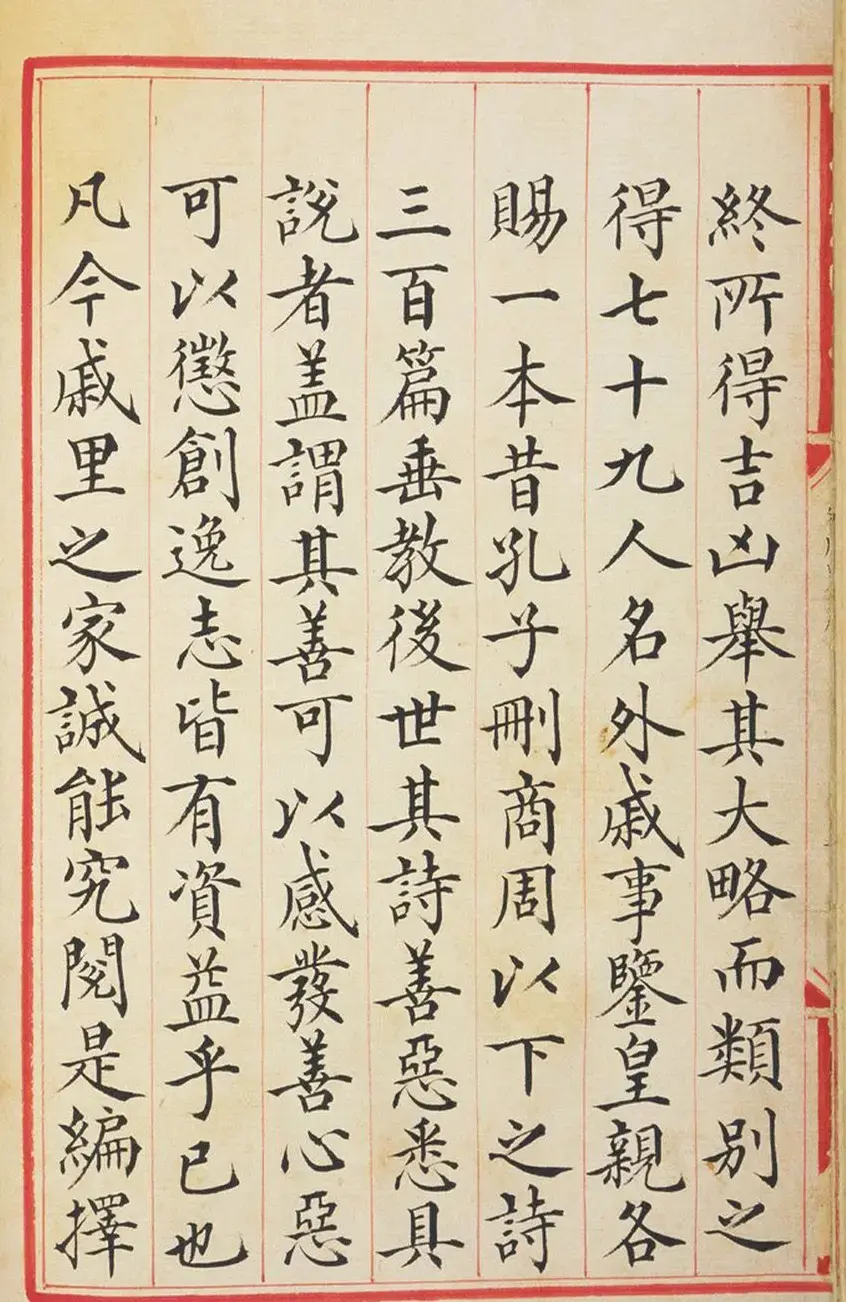 終所得吉凶舉其大略而類別之
得七十九人名外戚事鑒皇親各
賜一本昔孔子刪商周以下之詩
三百篇垂教後世其詩善惡悉具
說者蓋謂其善可以感發善心惡
可以懲創逸志皆有資益乎已也
凡今戚里之家誠能究閱是編擇